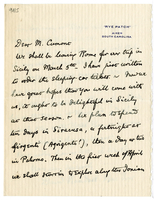 1905
"RYE PATCH"
AIKEN
SOUTH CAROLINA
Dear M. Cumont
We shall be leaving Rome for our trip in
Sicily on March 5th. I have just written
to order the sleeping car tickets - Now we
have great hopes that you will come with
us, it ought to be delightful in Sicily
at that season. We plan to spend
ten days in Siracusa, a fortnight at
Girgenti (Agrigente), then a day or two
in Palermo. Then in the first week of April
we shall start in to explore along the Ionian